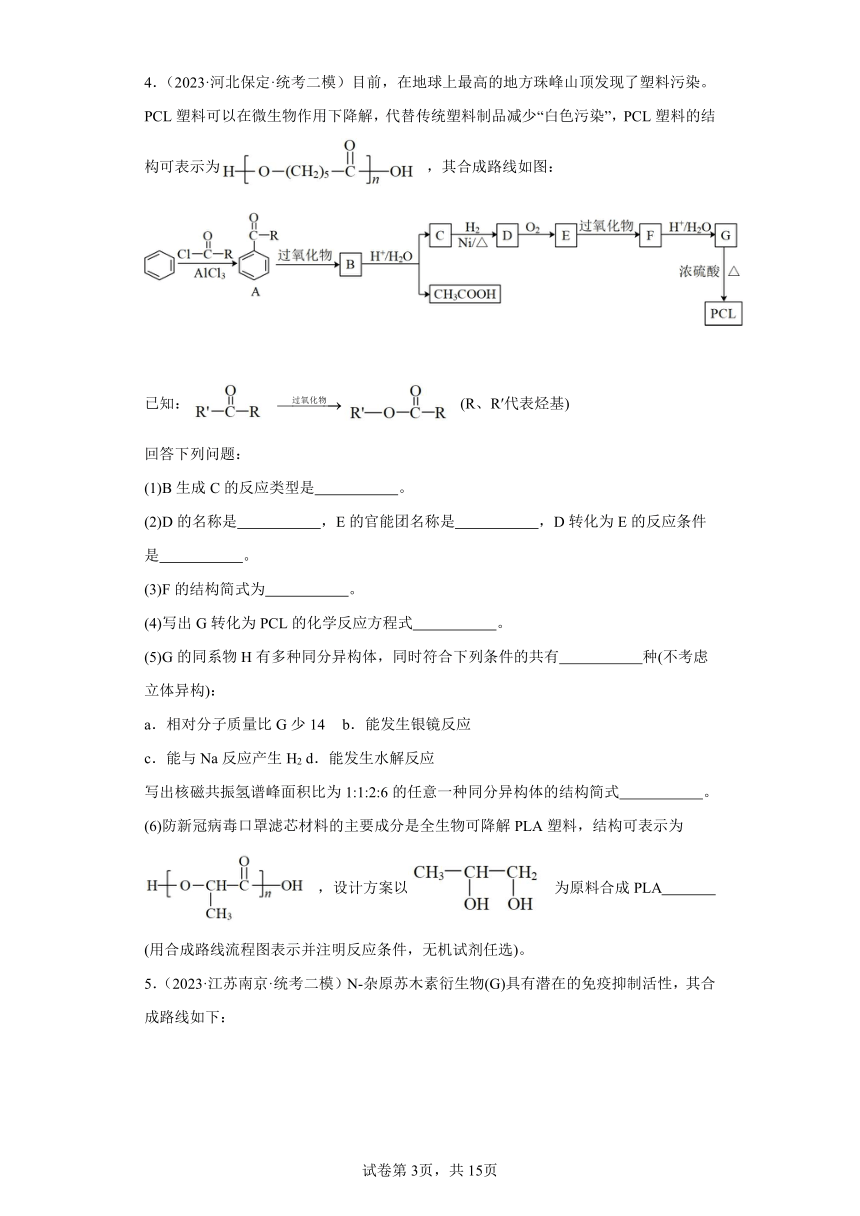 4.（2023·河北保定·统考二模）目前，在地球上最高的地方珠峰山顶发现了塑料污染。
PCL 塑料可以在微生物作用下降解，代替传统塑料制品减少“白色污染”，PCL 塑料的结
O
构可表示为 H-[-O-(CH₂)₅-C-]-n-OH ，其合成路线如图：
O
O C-R
Cl-C-R AlCl₃ A 过氧化物 B H⁺/H₂O C H₂ Ni/△ D O₂ E 过氧化物 F H⁺/H₂O G
浓硫酸 △
CH₃COOH
PCL
O O
已知： R'-C-R 过氧化物 R'-O-C-R (R、R′代表烃基)
回答下列问题：
(1)B 生成 C 的反应类型是 。
(2)D 的名称是 ，E 的官能团名称是 ，D 转化为 E 的反应条件
是 。
(3)F 的结构简式为 。
(4)写出 G 转化为 PCL 的化学反应方程式 。
(5)G 的同系物 H 有多种同分异构体，同时符合下列条件的共有 种(不考虑
立体异构)：
a．相对分子质量比 G 少 14 b．能发生银镜反应
c．能与 Na 反应产生 H₂ d．能发生水解反应
写出核磁共振氢谱峰面积比为 1:1:2:6 的任意一种同分异构体的结构简式 。
(6)防新冠病毒口罩滤芯材料的主要成分是全生物可降解 PLA 塑料，结构可表示为
O
H-[-O-CH-C-]-n-OH ，设计方案以 CH₃-CH-CH₂ 为原料合成 PLA
CH₃ OH OH
(用合成路线流程图表示并注明反应条件，无机试剂任选)。
5.（2023·江苏南京·统考二模）N-杂原苏木素衍生物(G)具有潜在的免疫抑制活性，其合
成路线如下：
试卷第 3页，共 15页